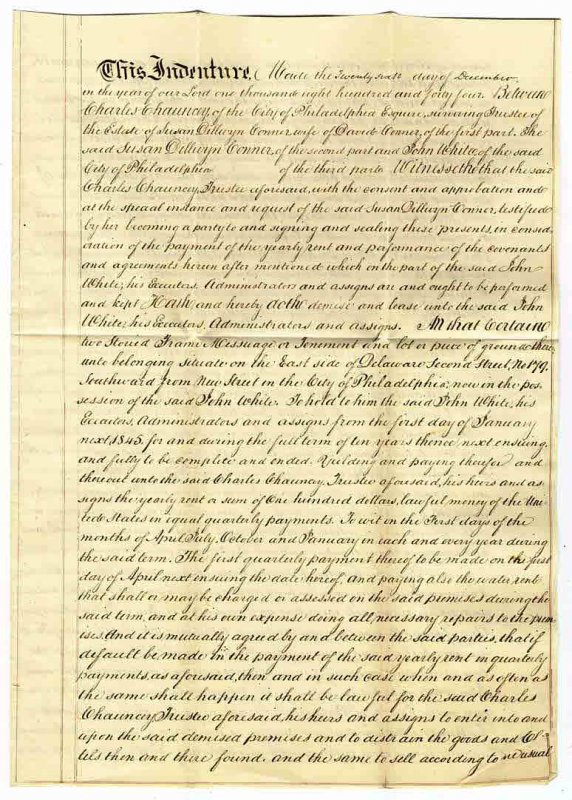 This Indenture, Made the Twenty sixth day of December,
in the year of our Lord one thousand eight hundred and forty four. Between
Charles Chauncey, of the City of Philadelphia Esquire, surviving Trustee of
the Estate of Susan Dillwyn Conner, wife of David Conner, of the first part. The
said Susan Dillwyn Conner, of the second part and John White, of the said
City of Philadelphia of the third part. Witnesseth that the said
Charles Chauncey, Trustee aforesaid, with the consent and approbation and
at the special instance and request of the said Susan Dillwyn Conner, testified
by her becoming a party to and signing and sealing these presents, in consid-
eration of the payment of the yearly rent and performance of the covenants
and agreements herein after mentioned which on the part of the said John
White, his Executors, Administrators and assigns are and ought to be performed
and kept Hath and hereby doth demise and lease unto the said John
White, his Executors, Administrators and assigns. All that Certain
two Storied Frame Messuage or Tenement and lot or piece of ground there
unto belonging situate on the East side of Delaware Second Street, No 179,
Southward from New Street in the City of Philadelphia; now in the pos-
session of the said John White. To hold to him the said John White, his
Executors, Administrators and assigns from the first day of January
next 1845, for and during the full term of ten years thence next ensuing,
and fully to be complete and ended. Yielding and paying therefor and
thereout unto the said Charles Chauncey Trustee aforesaid, his heirs and as-
signs the yearly rent or sum of One hundred dollars, lawful money of the Uni-
ted States in equal quarterly payments. To wit on the First days of the
months of April, July, October and January in each and every year during
the said term. The first quarterly payment thereof to be made on the first
day of April next ensuing the date hereof, and paying also the water rent
that shall or may be charged or assessed on the said premises during the
said term, and at his own expense doing all necessary repairs to the prem-
ises. And it is mutually agreed by and between the said parties, that if
default be made in the payment of the said yearly rent in quarterly
payments, as aforesaid, then and in such case when and as often as
the same shall happen it shall be lawful for the said Charles
Chauncey Trustee aforesaid, his heirs and assigns to enter into and
upon the said demised premises and to distrain the goods and Chat-
tels then and there found, and the same to sell according to usual